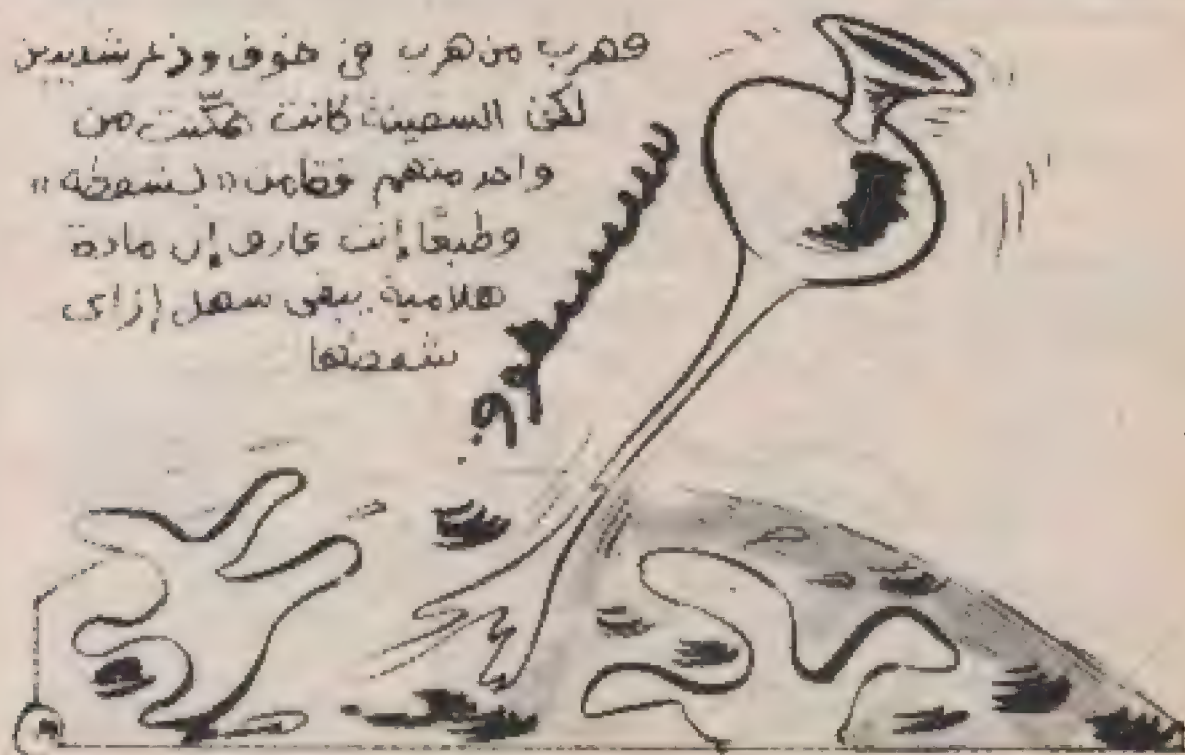 فهرب من هرب في خوف وذعر شديدين
لكن السفينة كانت تمكّنت من
واحد منهم فقامت «بشفطه»
وطبعًا إنت عارف إن مادة
هلامية يبقى سهل إزاى
شفطها
سسسسفوو